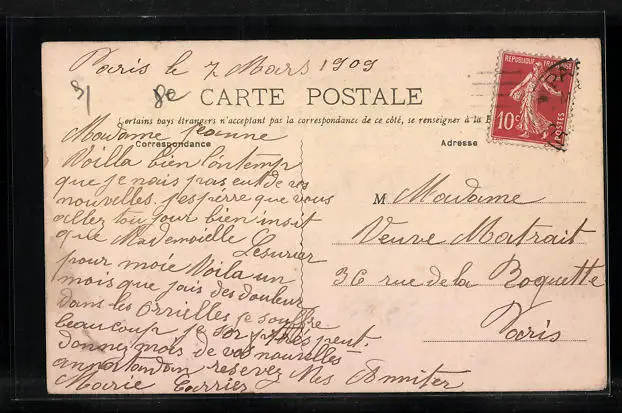 Paris le 7 Mars 1909
CARTE POSTALE
Certains pays étrangers n'acceptent pas la correspondance de ce côté, se renseigner à la
Correspondance
Adresse
REPUBLIQUE
10c
POSTES
Madame Jeanne
Voilla bien lontemp
que je nais pas eut de vos
nouvelles. j'espierre que vous
allez toujour bien insit
que Mademoielle Lesurier
pour moie Voila un
mois que jais des douleur
dans les Ornielles je souffre
beaucoup je sor très peut.
donnez mois de vos nouvelles
annatandan resevez Mes Amniter
Marie Carrier
M Madame
Veuve Matrait
36 rue de la Roquette
Paris